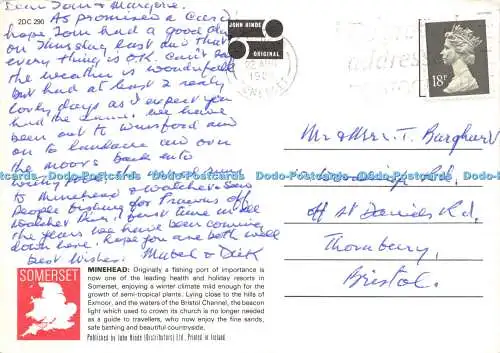 2DC 290
Dear Tom & Margore.
As promised a Card
hope Tom had a good day
on Thursday last and that
every thing is O.K. Can't say
the weather is wonderfull
but had at least 2 really
lovely days as I expect you
had the same. We have
been out to Winsford and
on to and over
the moors back into
to Minehead & Watchet & Saw
People fishing for Prawns off
Watchet Pier. first time in all
the years we have been coming
down here. hope you are both well
Best Wishes. Mabel & Dick
JOHN HINDE
ORIGINAL
18P
Mr & Mrs. T. Burghart
Rd.
off St Daniels Rd.
Thornbury.
Bristol.
Dodo-Postcards Dodo-Postcards Dodo-Postcards Dodo-Postcards
SOMERSET
MINEHEAD: Originally a fishing port of importance is
now one of the leading health and holiday resorts in
Somerset, enjoying a winter climate mild enough for the
growth of semi-tropical plants. Lying close to the hills of
Exmoor, and the waters of the Bristol Channel, the beacon
light which used to crown its church is no longer needed
as a guide to travellers, who now enjoy the fine sands,
safe bathing and beautiful countryside.
Published by John Hinde (Distributors) Ltd., Printed in Ireland